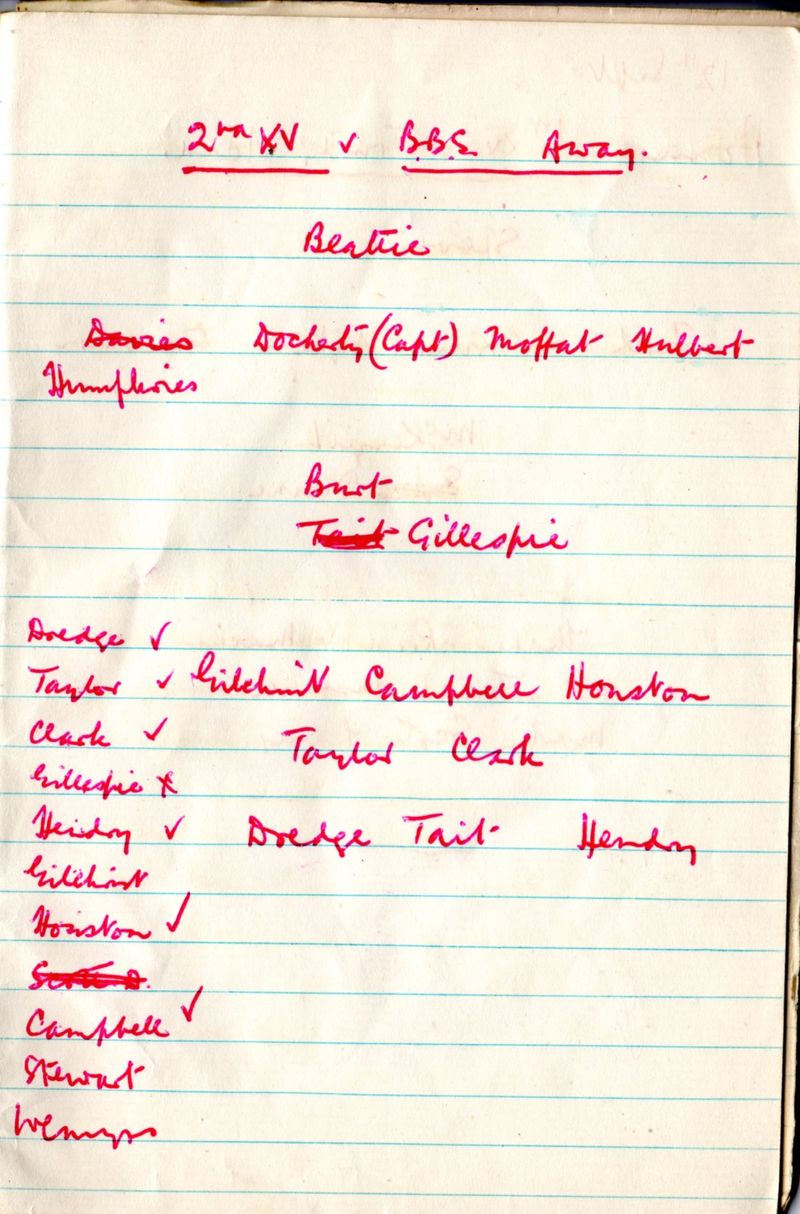 2nd XV v B.B.S. Away.
Beattie
Davies Docherty (Capt) Moffat Hulbert
Humphries
Burt
Tait Gillespie
Dredge ✓
Taylor ✓ Gilchrist Campbell Houston
Clark ✓ Taylor Clark
Gillespie x
Hendry ✓ Dredge Tait Hendry
Gilchrist
Houston ✓
Campbell ✓
Stewart
Wemyss